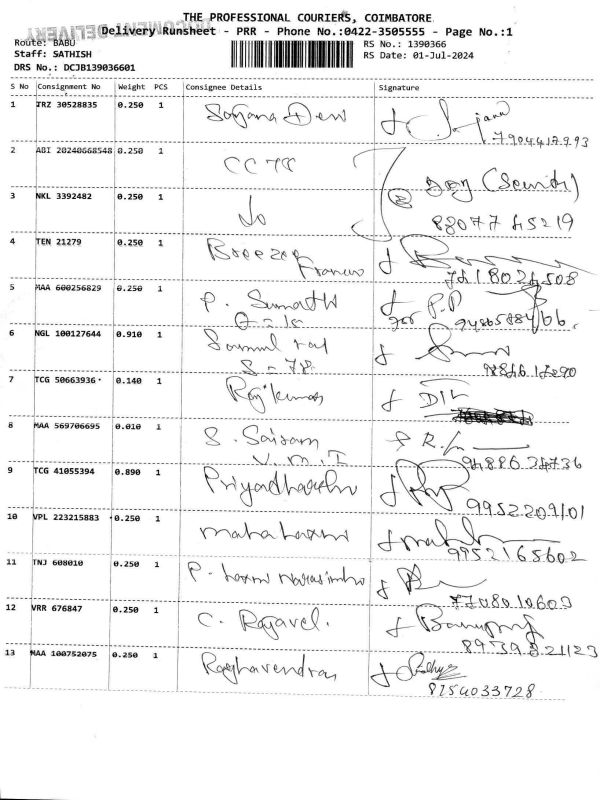 THE PROFESSIONAL COURIERS, COIMBATORE
Delivery Runsheet - PRR - Phone No.:0422-3505555 - Page No.:1
Route: BABU
RS No.: 1390366
Staff: SATHISH
RS Date: 01-Jul-2024
DRS No.: DCJB139036601
S No Consignment No Weight PCS Consignee Details Signature
1 TRZ 30528835 0.250 1 Devi
7904417993
2 ABI 20240668548 0.250 1 CC 78
3 NKL 3392482 0.250 1
88077 45219
4 TEN 21279 0.250 1 Breezer
Franco
7418024508
5 MAA 600256829 0.250 1 P. Sumathi
for P.P
6 NGL 100127644 0.910 1
S = 78
7 TCG 50663936 0.140 1 Rajkumar
8 MAA 569706695 0.010 1 S. Sairam
V.M.I
9 TCG 41055394 0.890 1 Priyadharshini
9952209101
10 VPL 223215883 0.250 1 mahalaxmi
9952165602
11 TNJ 608010 0.250 1 P. Laxmi Narasimha
12 VRR 676847 0.250 1 C. Rajavel.
13 MAA 100752075 0.250 1 Raghavendran
8754033728